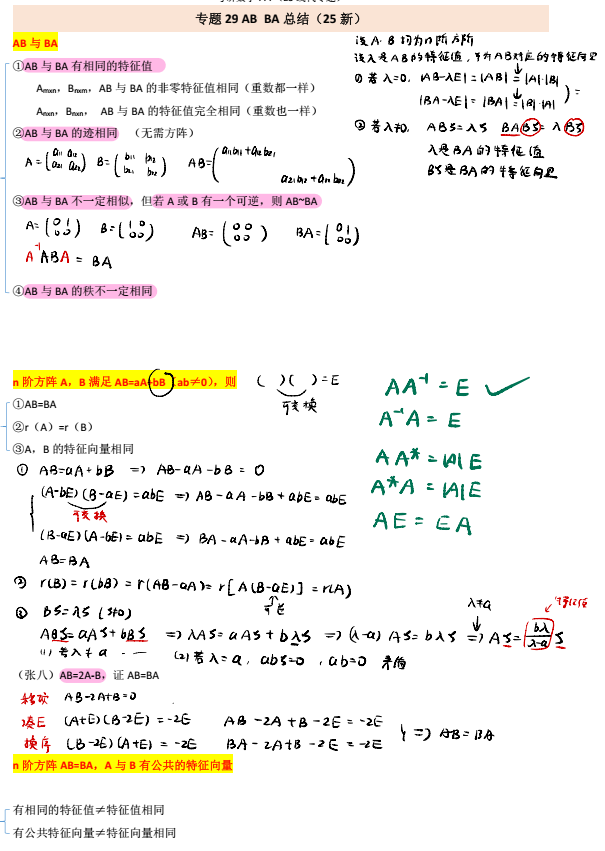 专题 29 AB BA 总结（25 新）
AB 与 BA
①AB 与 BA 有相同的特征值
Amxn，Bnxm，AB 与 BA 的非零特征值相同（重数都一样）
Anxn，Bnxn， AB 与 BA 的特征值完全相同（重数也一样）
②AB 与 BA 的迹相同 （无需方阵）
A = (a11 a12 a21 a22) B = (b11 b12 b21 b22) AB = (a11b11 + a12b21 a21b12 + a22b22)
③AB 与 BA 不一定相似，但若 A 或 B 有一个可逆，则 AB~BA
A = (0 1 0 0) B = (1 0 0 0) AB = (0 0 0 0) BA = (0 1 0 0)
A⁻¹ABA = BA
④AB 与 BA 的秩不一定相同
设 A、B 均为n阶方阵
设 λ 是 AB 的特征值，ξ 为 AB 对应的特征向量
① 若 λ=0, |AB-λE| = |AB| = |A|·|B|
|BA-λE| = |BA| = |B|·|A| ) =
② 若 λ≠0, ABξ = λξ BABξ = λBξ
λ是 BA 的特征值
Bξ是 BA 的特征向量
n 阶方阵 A，B 满足 AB=aA+bB（ab≠0），则
( )( ) = E
可交换
①AB=BA
②r（A）=r（B）
③A，B 的特征向量相同
AA⁻¹ = E ✓
A⁻¹A = E
AA* = |A|E
A*A = |A|E
AE = EA
① AB = aA + bB => AB - aA - bB = 0
(A-bE)(B-aE) = abE => AB - aA - bB + abE = abE
可交换
(B-aE)(A-bE) = abE => BA - aA - bB + abE = abE
AB = BA
② r(B) = r(bB) = r(AB-aA) = r[A(B-aE)] = r(A)
可逆
③ Bξ = λξ (ξ≠0) λ≠a 特征值
ABξ = aAξ + bBξ => λAξ = aAξ + bλξ => (λ-a)Aξ = bλξ => Aξ = bλ/(λ-a) ξ
(1) 若 λ ≠ a ... (2) 若 λ = a, abξ=0, ab=0 矛盾
（张八）AB=2A-B，证 AB=BA
移项 AB-2A+B=0
凑E (A+E)(B-2E) = -2E AB - 2A + B - 2E = -2E
换序 (B-2E)(A+E) = -2E BA - 2A + B - 2E = -2E } => AB = BA
n 阶方阵 AB=BA，A 与 B 有公共的特征向量
有相同的特征值≠特征值相同
有公共特征向量≠特征向量相同